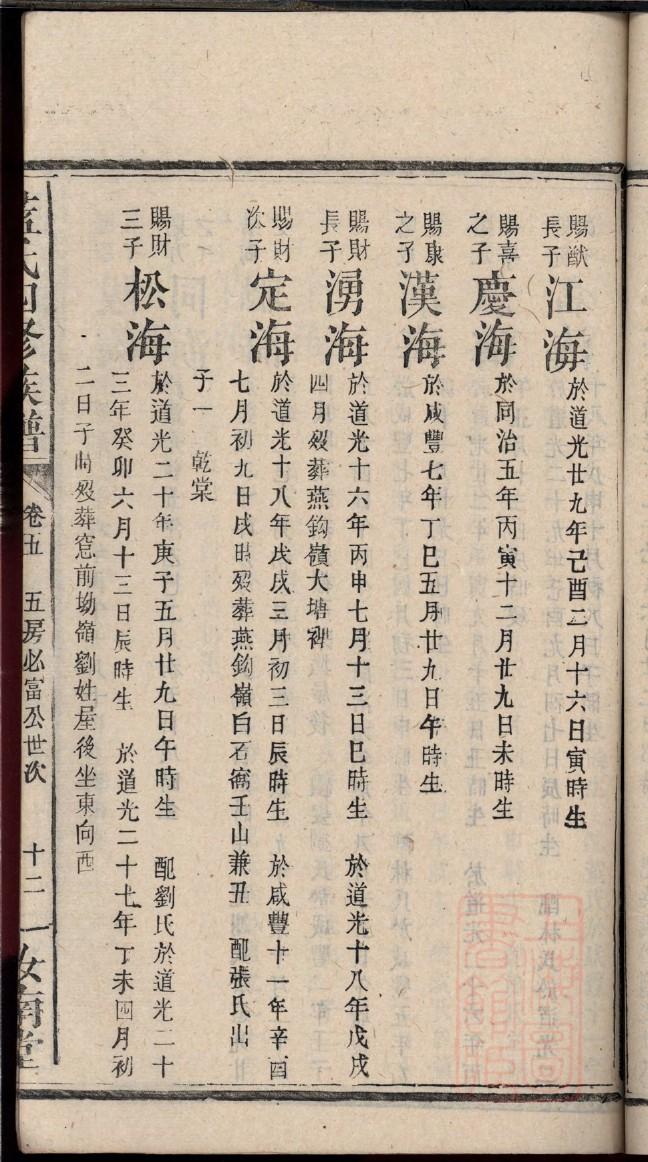 賜猷長子 江海 於道光廿九年己酉二月十六日寅時生
賜喜之子 慶海 於同治五年丙寅十二月廿九日未時生
賜康之子 漢海 於咸豐七年丁巳五月廿九日午時生
賜財長子 湧海 於道光十六年丙申七月十三日巳時生 於道光十八年戊戌
四月歿葬燕鈎嶺大塘裡
賜財次子 定海 於道光十八年戊戌三月初三日辰時生 於咸豐十一年辛酉
七月初九日戌時歿葬燕鈎嶺白石窩壬山兼丑 配張氏出
子一 乾棠
賜財三子 松海 於道光二十年庚子五月廿九日午時生 配劉氏於道光二十
三年癸卯六月十三日辰時生 於道光二十七年丁未四月初
二日子時歿葬窓前坳嶺劉姓屋後坐東向西
藍氏四修族譜 卷五 五房必富公世次 十二 汝南堂